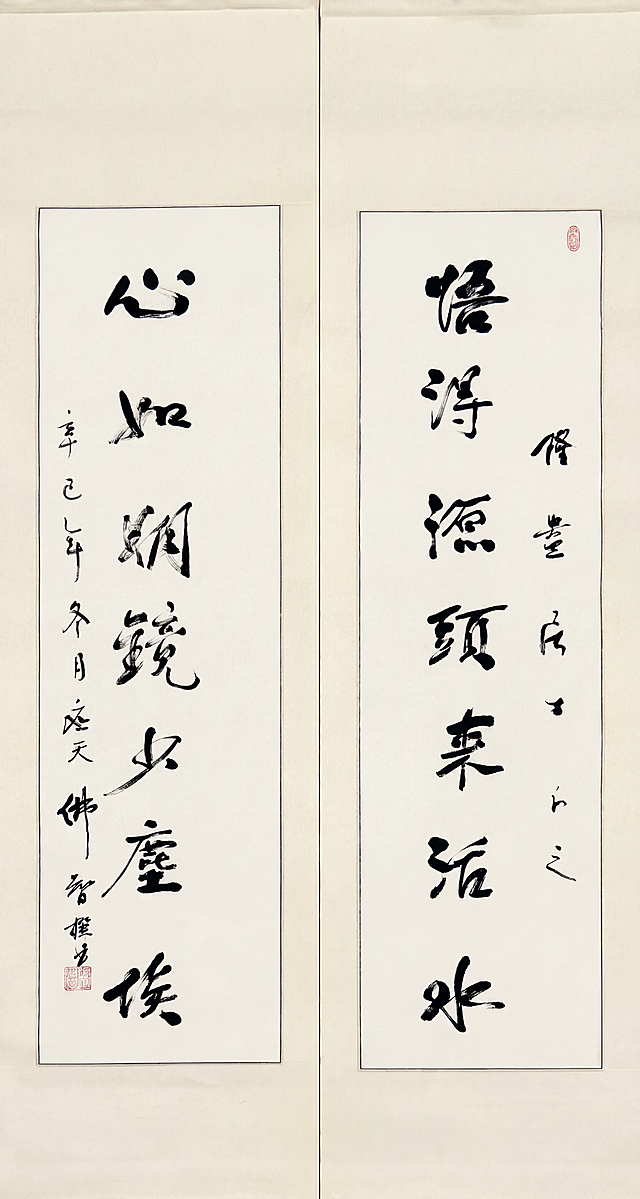 悟得源頭来活水
居士正之
心如明鏡少塵埃
辛巳年冬月 天佛智撰書